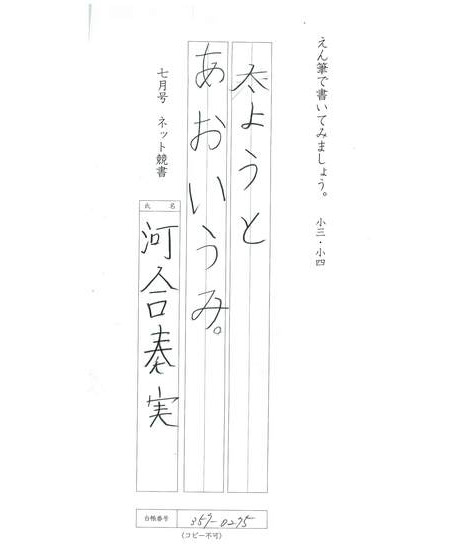 えん筆で書いてみましょう。 小三・小四
太ようと
あおいうみ。
七月号 ネット競書
氏名
河合奏実
台帳番号 359-0275
(コピー不可)